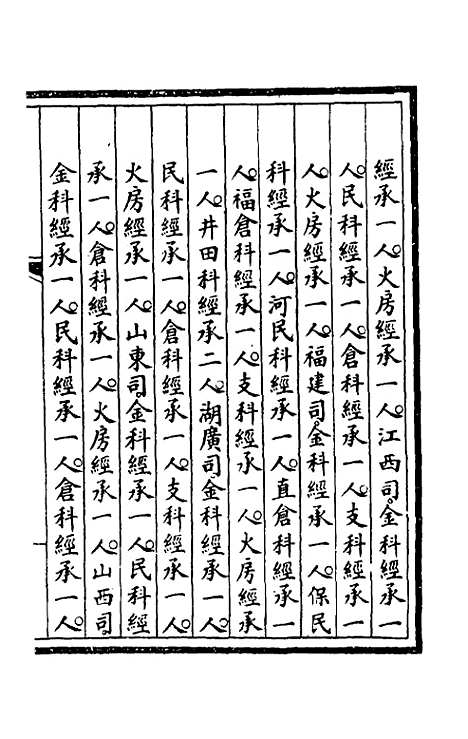 經承一人。火房經承一人。江西司。金科經承一
人。民科經承一人。倉科經承一人。支科經承一
人。火房經承一人。福建司。金科經承一人。保民
科經承一人。河民科經承一人。直倉科經承一
人。福倉科經承一人。支科經承一人。火房經承
一人。井田科經承二人。湖廣司。金科經承一人。
民科經承一人。倉科經承一人。支科經承一人。
火房經承一人。山東司。金科經承一人。民科經
承一人。倉科經承一人。火房經承一人。山西司。
金科經承一人。民科經承一人。倉科經承一人。